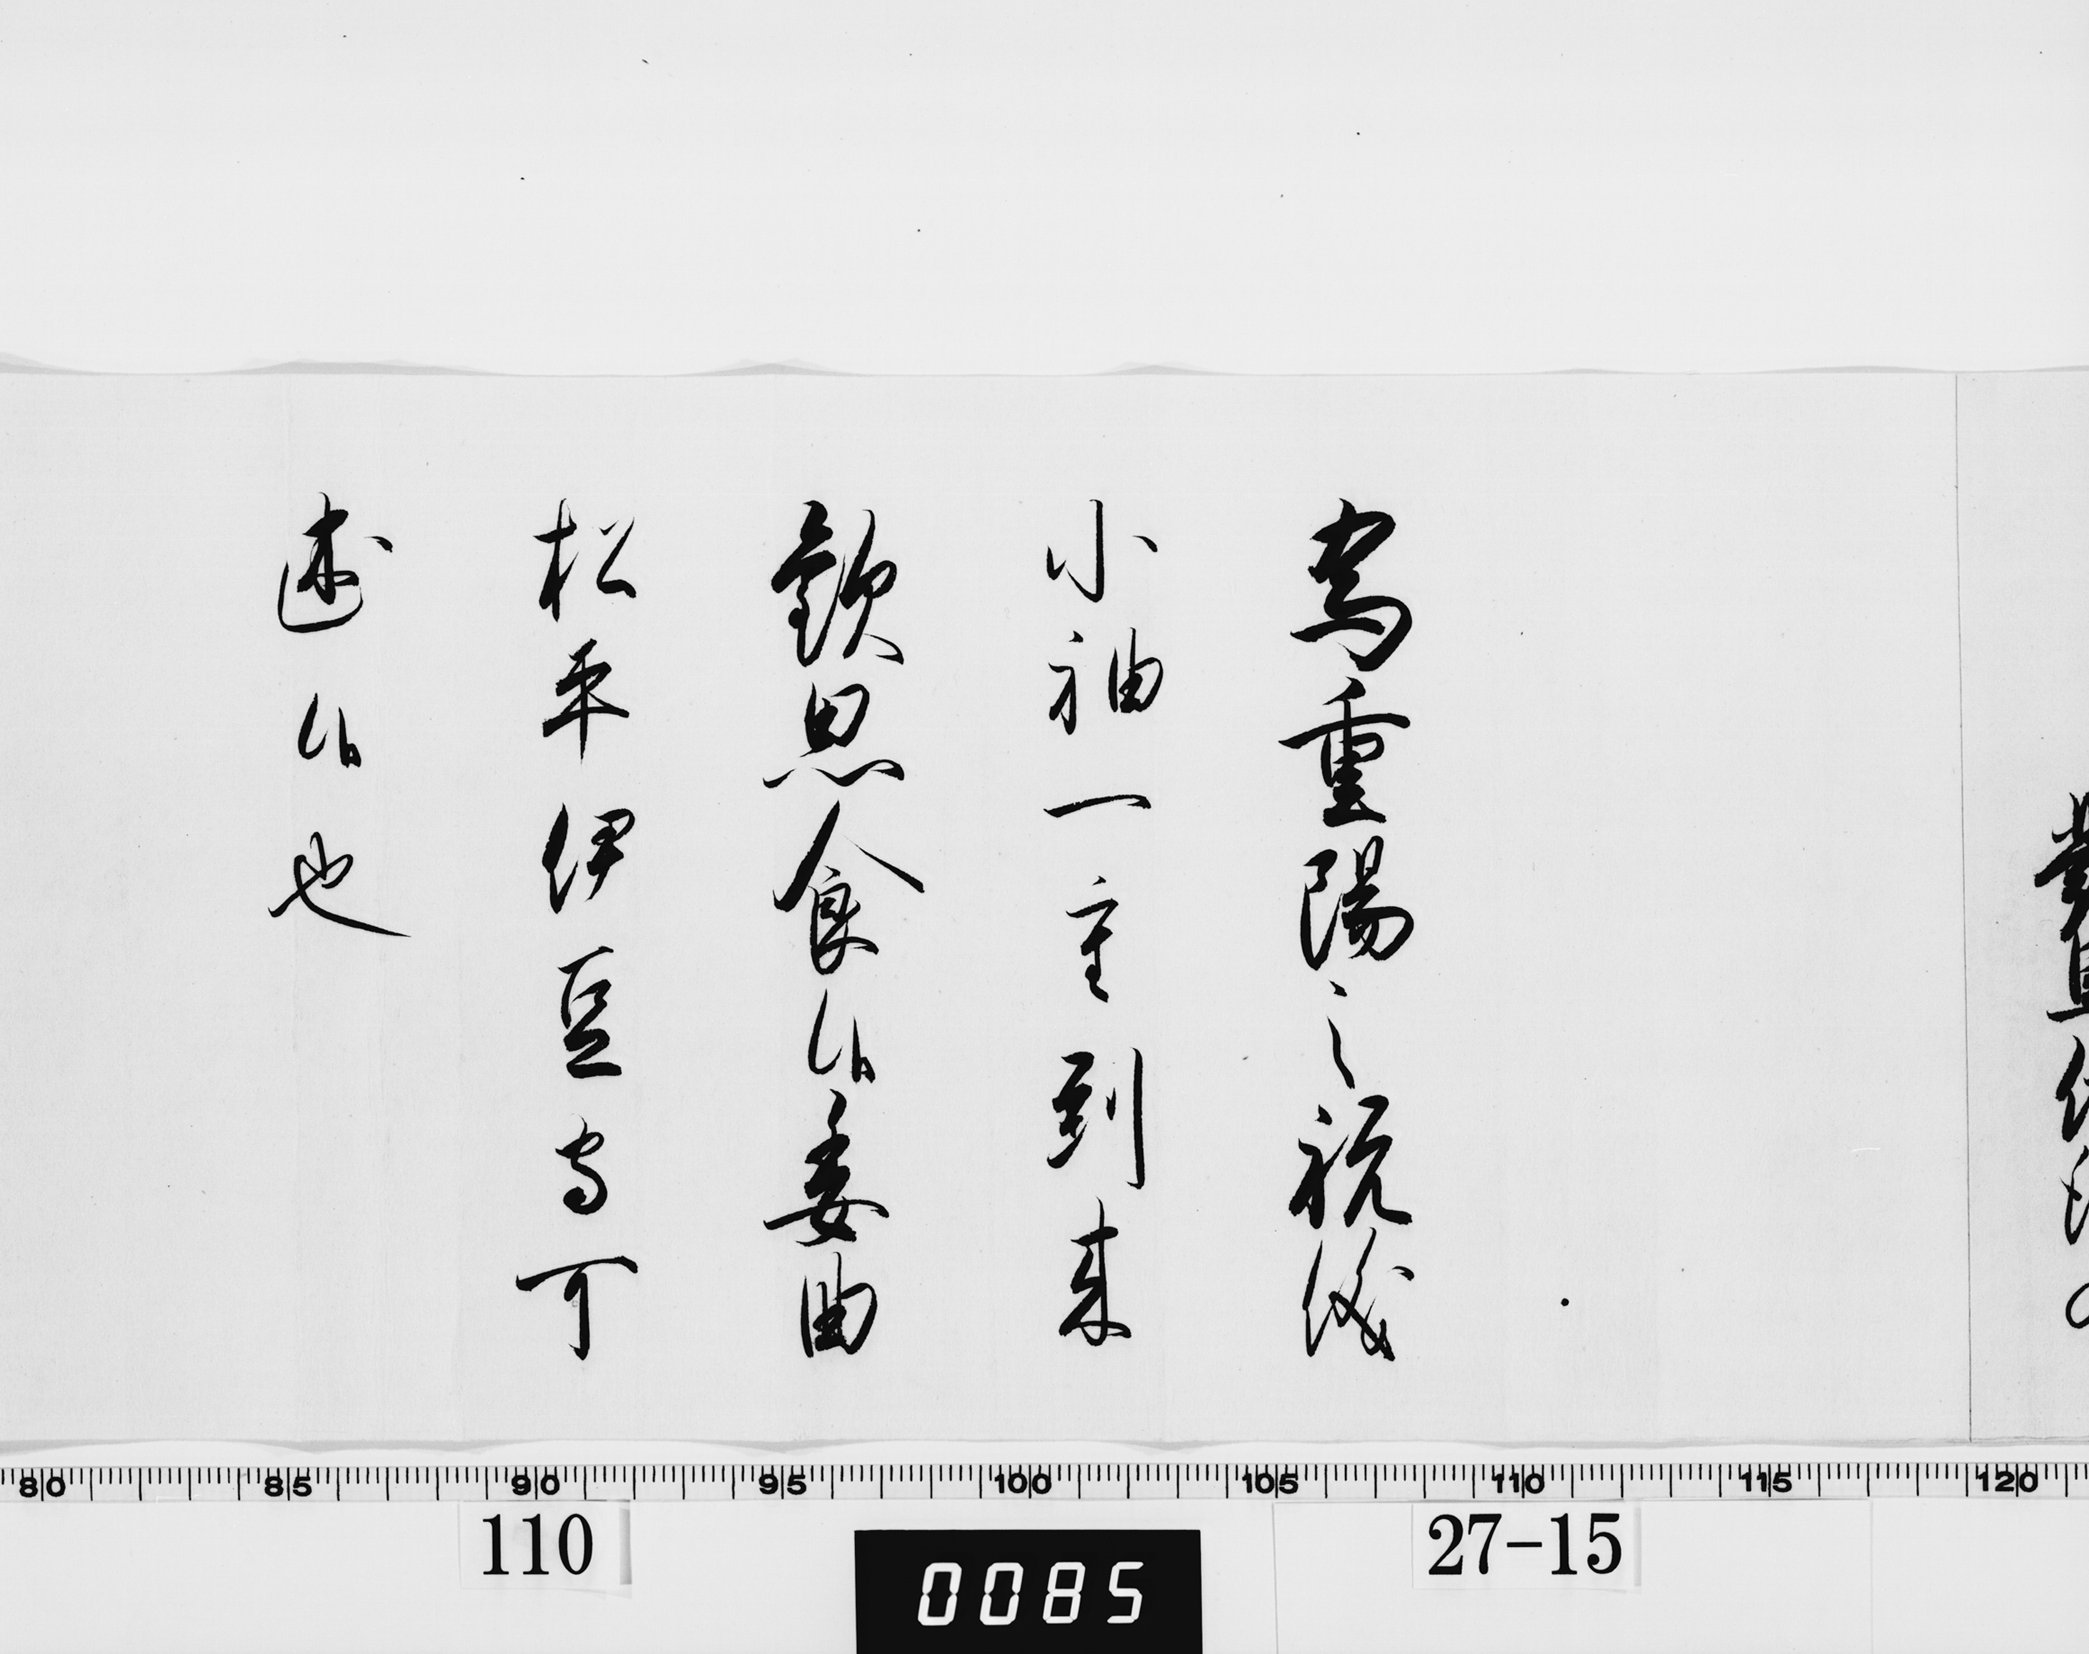 為重陽之祝儀
小袖一重到来
歓思食候委曲
松平伊豆守可
述候也
80 85 90 95 100 105 110 115 120
110
0085
27-15